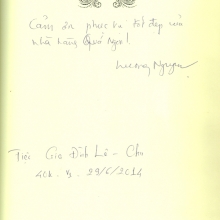 Cảm ơn phục vụ tốt đẹp của
nhà hàng Quá Ngon!
Lương Nguyen
Tiệc Gia Đình Lê - Chu
29/6/2014